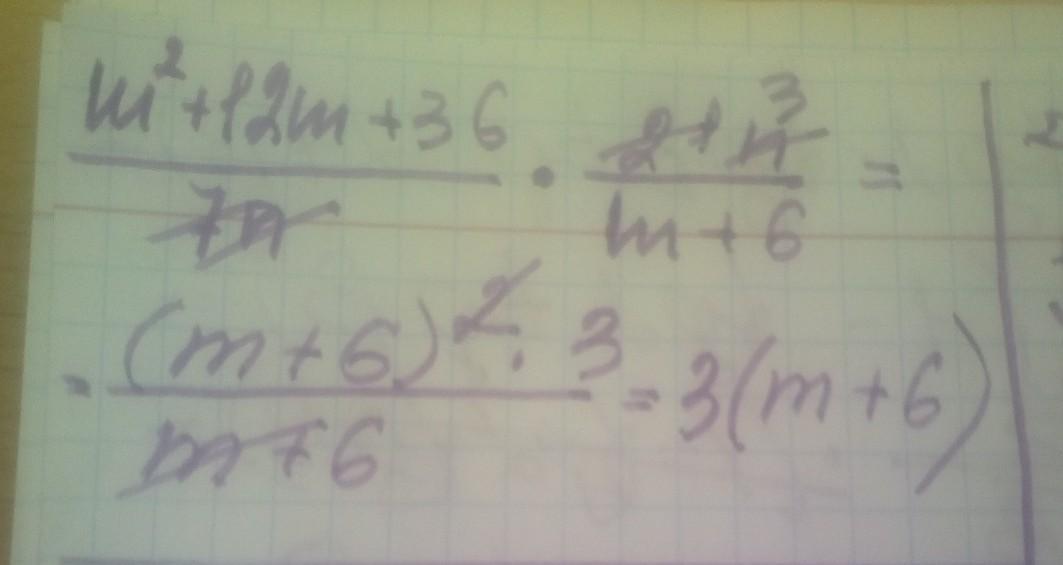 m²+12m+36 / 7n · 21n ³ / m+6 =
= (m+6)² · 3 / m+6 = 3(m+6)